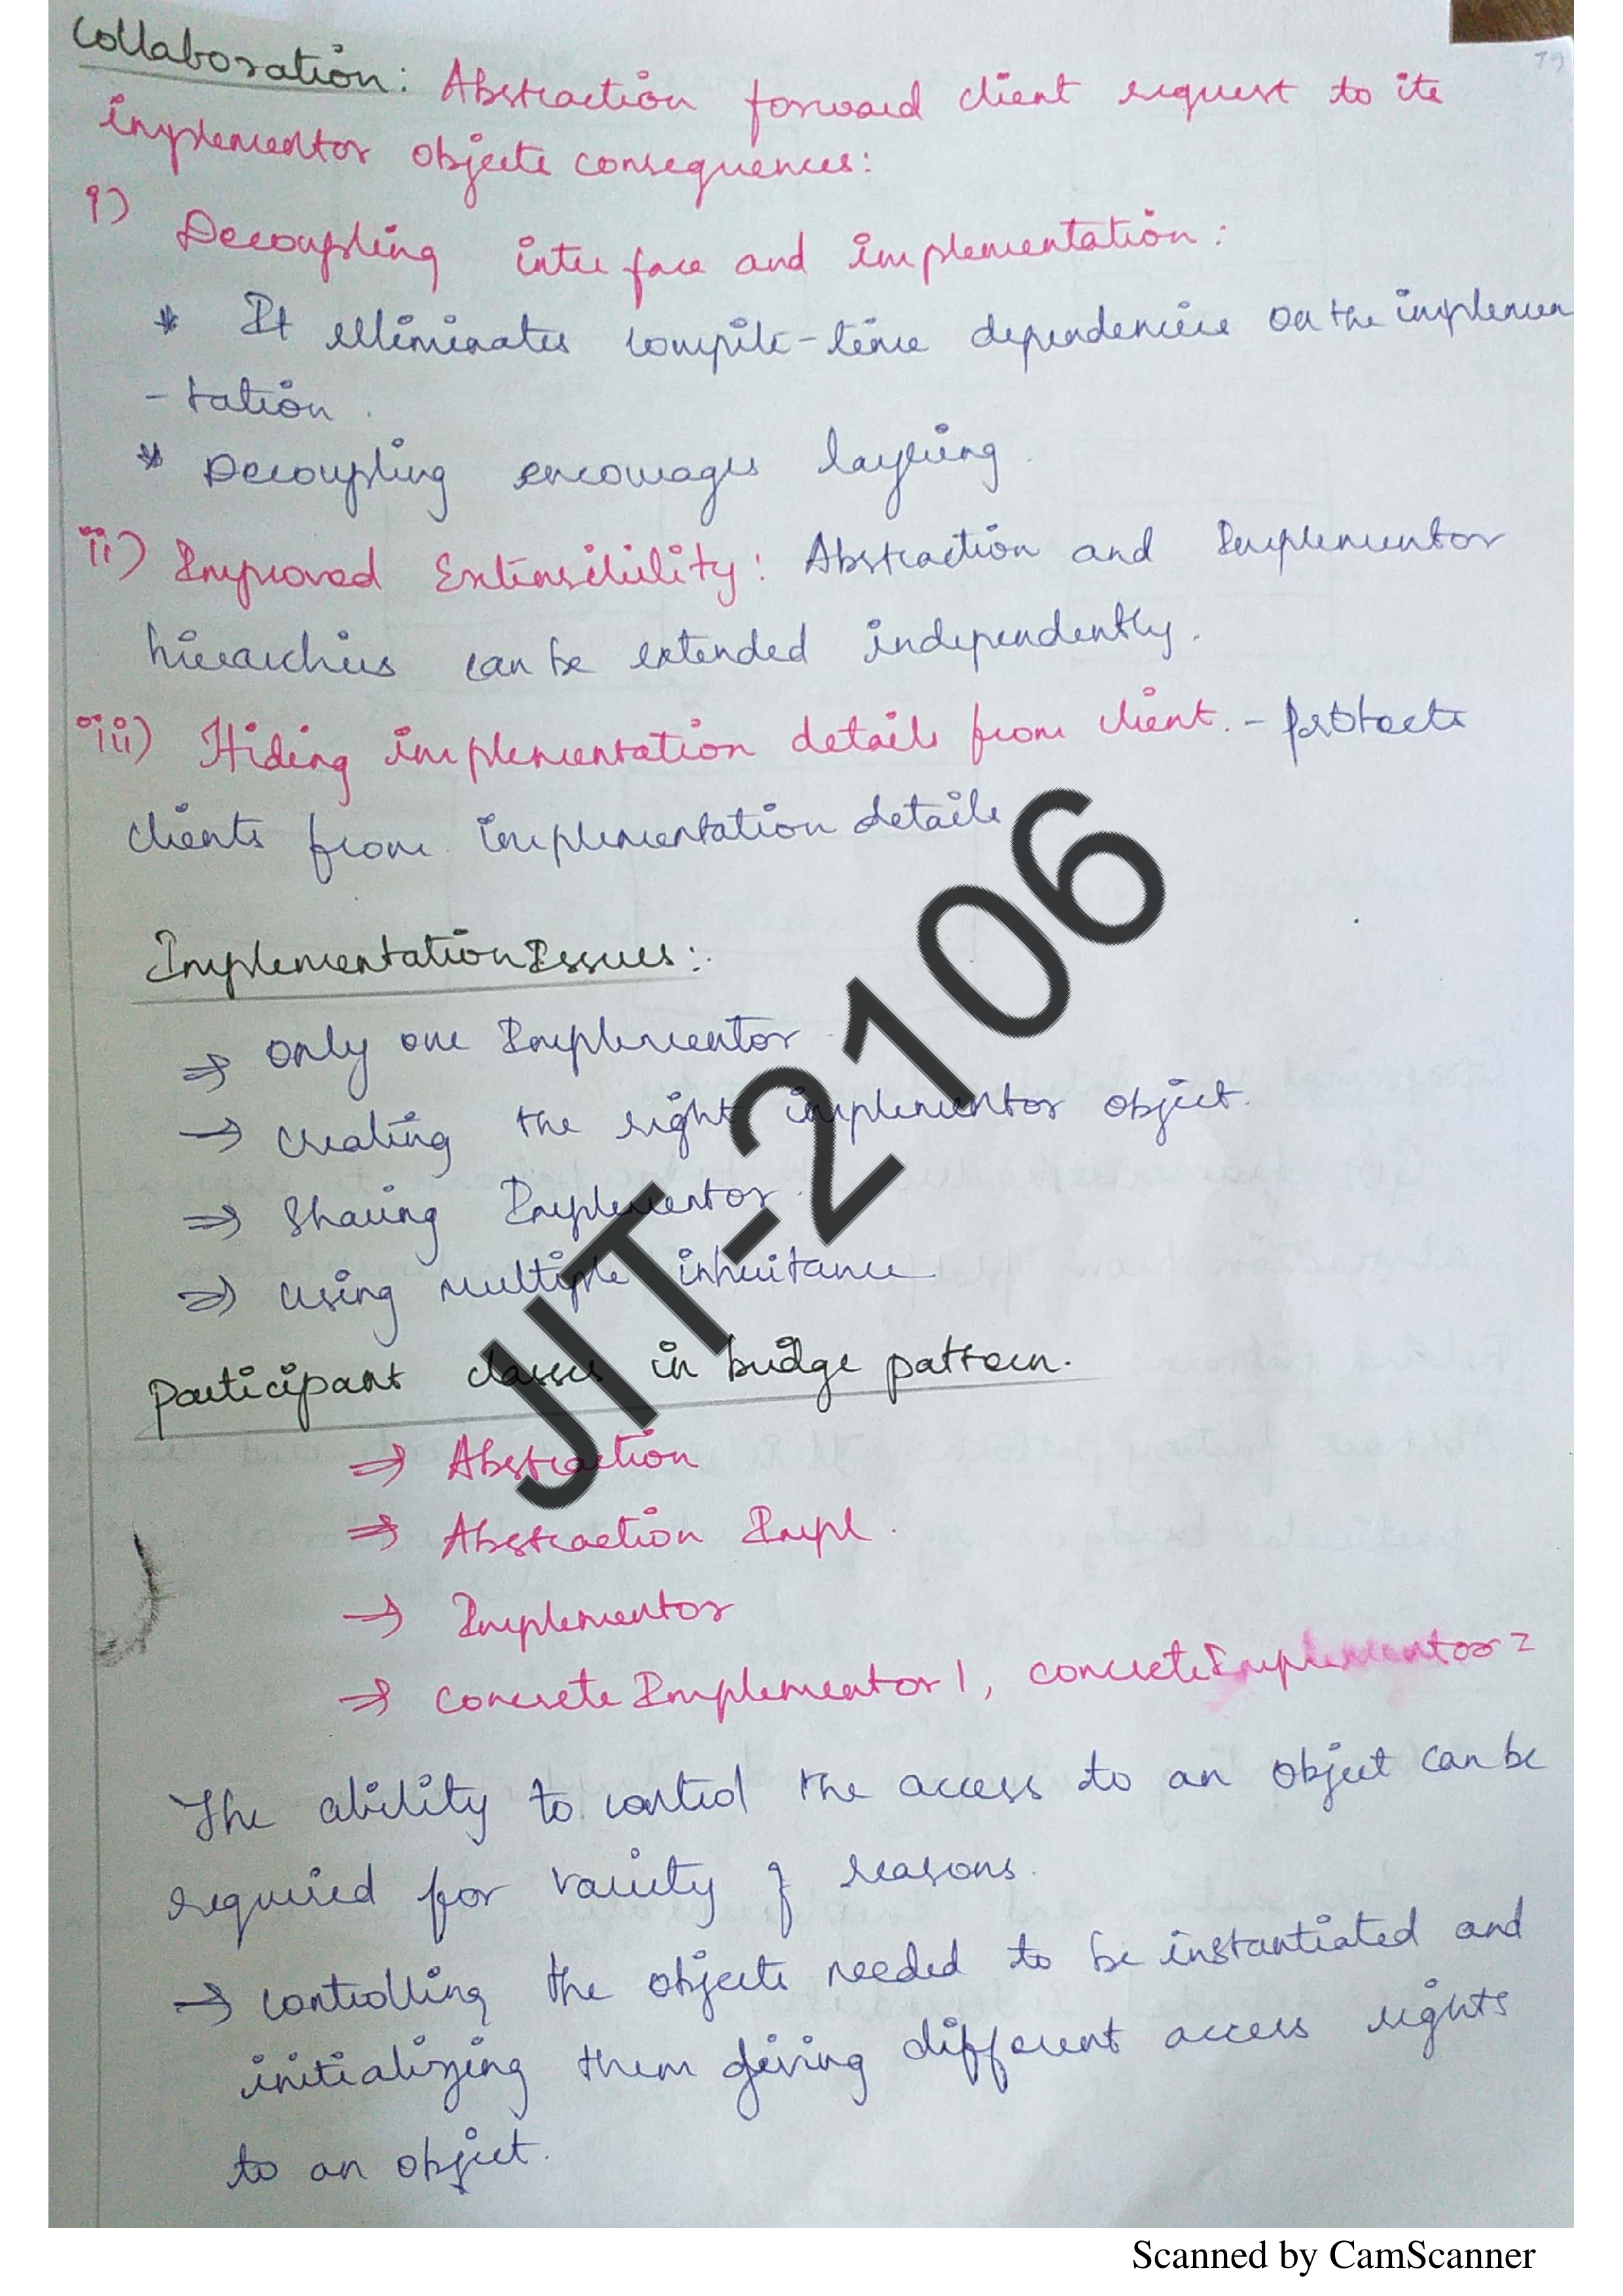 79
Collaboration: Abstraction forward client request to its
implementor objects consequences:
i)
Decoupling interface and implementation:
* It elliminates compile-time dependencies on the implemen
- tation.
* Decoupling encourages layering.
ii) Improved Extensibility: Abstraction and Implementor
hierarchies can be extended independently.
iii) Hiding implementation details from client. - protects
clients from implementation details
Implementation Issues:
⇒ Only one Implementor
→ creating the right implementor object.
⇒ Sharing Implementor.
⇒ using multiple inheritance
Participant classes in bridge pattern.
⇒ Abstraction
⇒ Abstraction Impl.
→ Implementor
⇒ concrete Implementor 1, concrete Implementor 2
The ability to control the access to an object can be
required for variety of reasons.
→ controlling the objects needed to be instantiated and
initializing them giving different access rights
to an object.
JIT-2106
Scanned by CamScanner